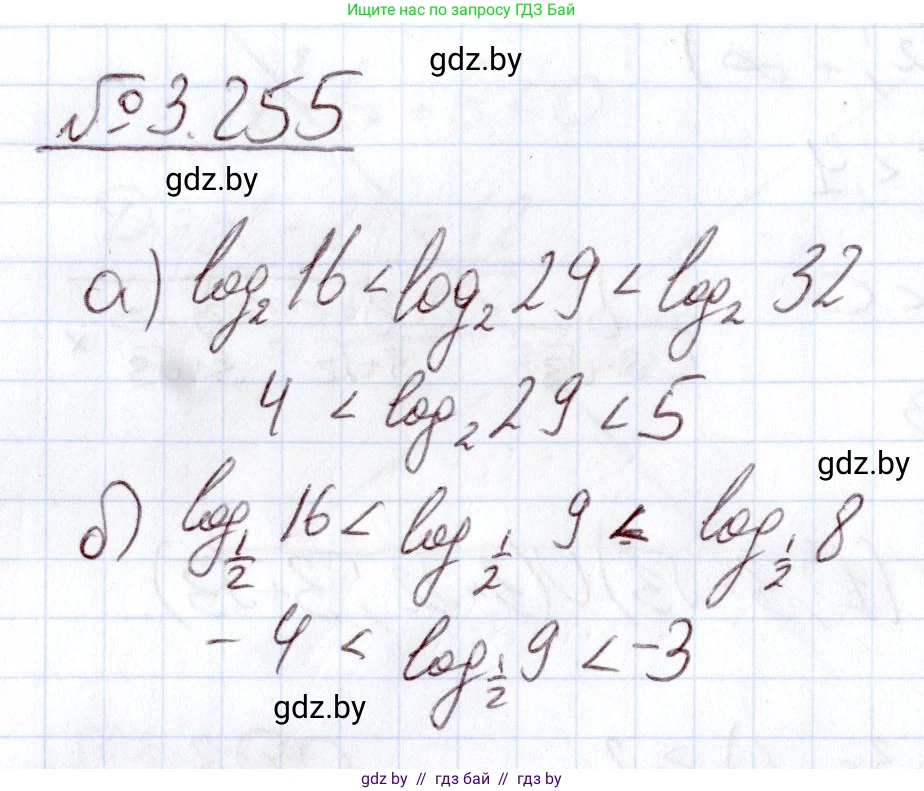 Ищите нас по запросу ГДЗ Бай
gdz.by
№ 3.255
gdz.by
а) log₂ 16 < log₂ 29 < log₂ 32
4 < log₂ 29 < 5
gdz.by
б) log_{1/2} 16 < log_{1/2} 9 < log_{1/2} 8
-4 < log_{1/2} 9 < -3
gdz.by
gdz by // гдз бай // гдз by